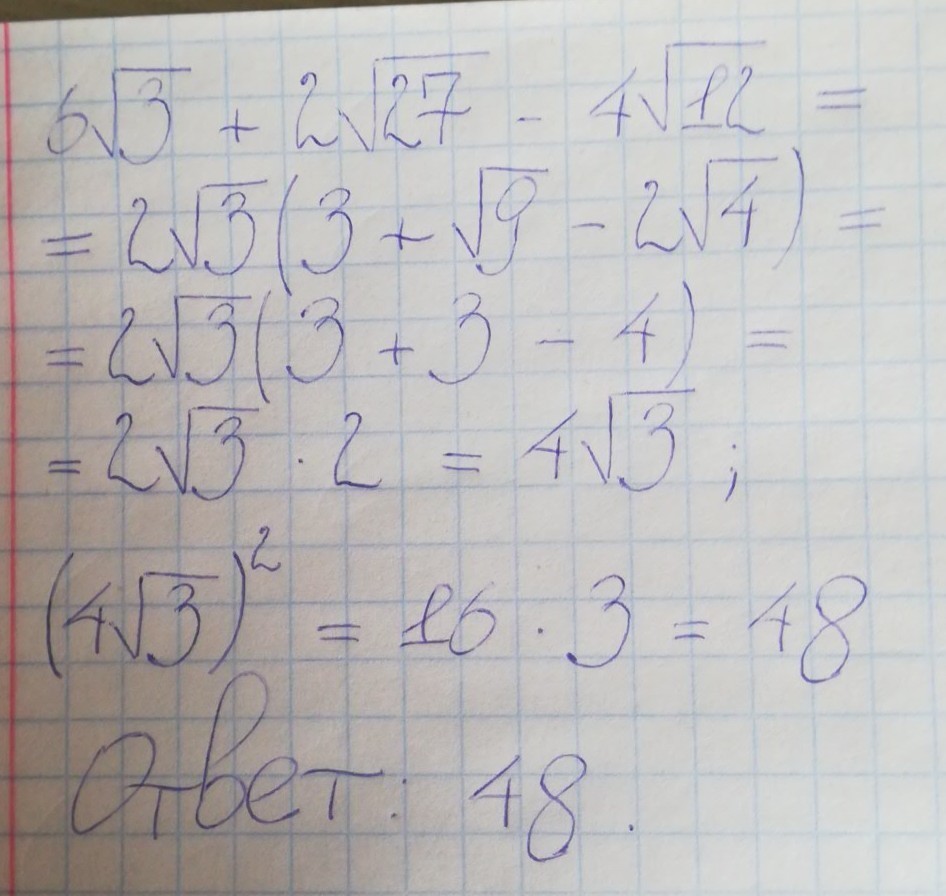 6√3 + 2√27 - 4√12 =
= 2√3(3 + √9 - 2√4) =
= 2√3(3 + 3 - 4) =
= 2√3 · 2 = 4√3 ;
(4√3)² = 16 · 3 = 48
Ответ: 48 .